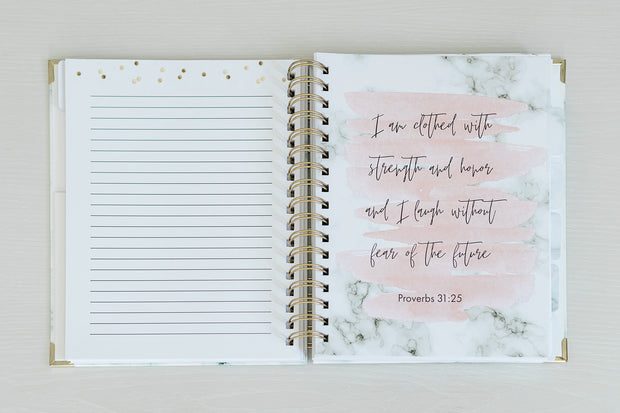 I am clothed with
strength and honor
and I laugh without
fear of the future
Proverbs 31:25